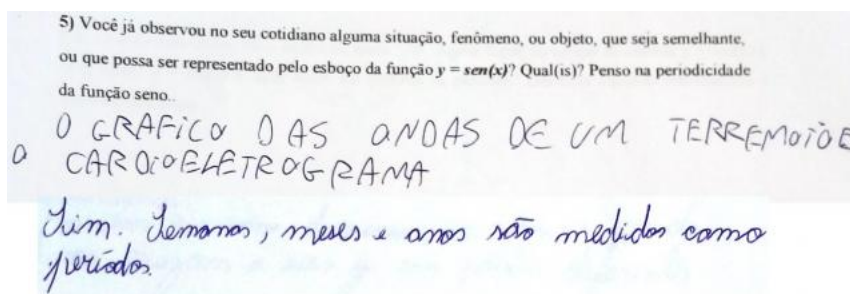 5) Você já observou no seu cotidiano alguma situação, fenômeno, ou objeto, que seja semelhante,
ou que possa ser representado pelo esboço da função y = sen(x)? Qual(is)? Penso na periodicidade
da função seno..
O GRAFICO DAS ONDAS DE UM TERREMOTO E
O CARDIOELETROGRAMA
Sim. Semanas, meses e anos são medidos como
períodos.